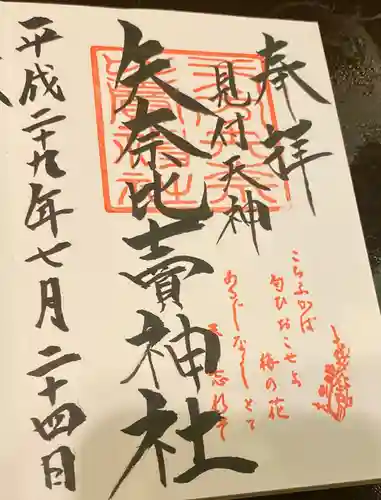 奉拝
見付天神
矢奈比賣神社
平成二十九年七月二十四日
こちふかば
匂ひおこせよ
梅の花
あるじなしとて
忘れそ